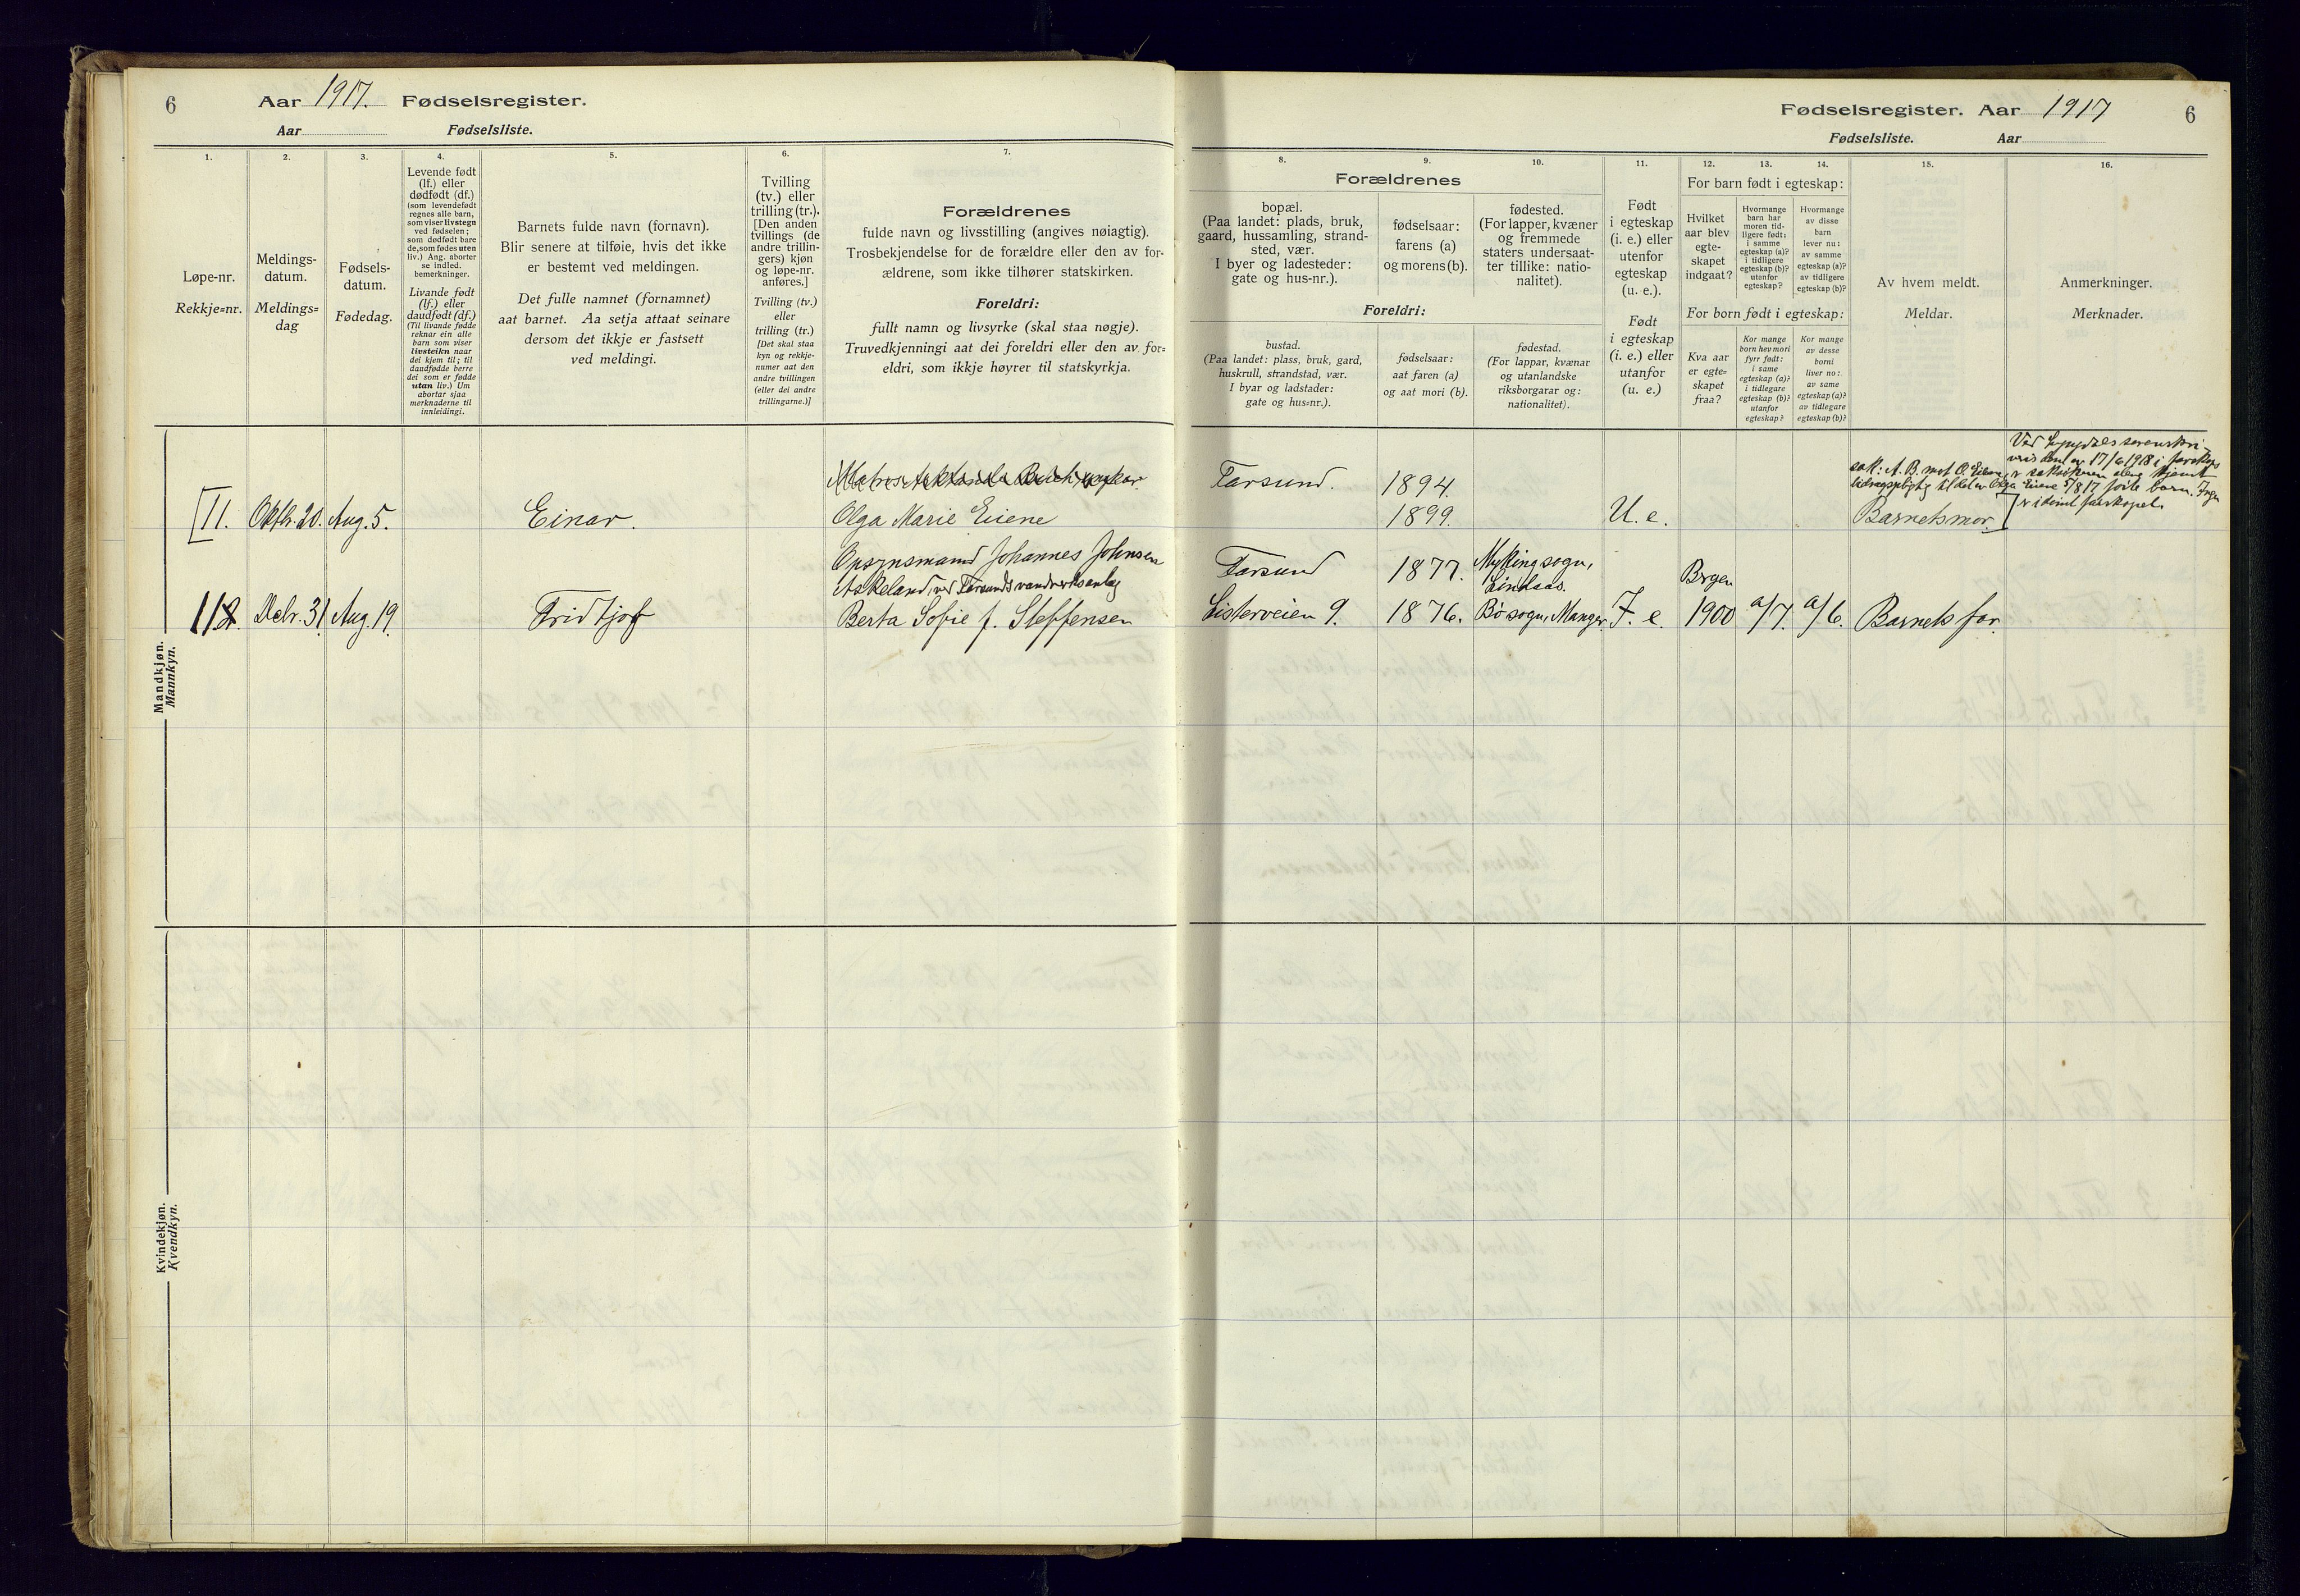 6
Aar 1917. Fødselsregister.
Aar Fødselsliste.
1.
2.
3.
4.
5.
6.
7.
Løpe-nr.
Rekkje=nr.
Meldings-
datum.
Meldings=
dag
Fødsels-
datum.
Fødedag.
Levende født
(lf.) eller
dødfødt (df.)
(som levendefødt
regnes alle barn,
som viser livstegn
ved fødselen;
som dødfødt bare
de, som fødes uten
liv.) Ang. aborter
se indled.
bemerkninger.
Livande født
(lf.) eller
daudfødt (df.)
(Til livande fødde
reknar ein alle
barn som viser
livsteikn naar
dei kjem til; til
daudfødde berre
dei som er fødde
utan liv.) Um
abortar sjaa
merknaderne til
innleidingi.
Barnets fulde navn (fornavn).
Blir senere at tilføie, hvis det ikke
er bestemt ved meldingen.
Det fulle namnet (fornamnet)
aat barnet. Aa setja attaat seinare
dersom det ikkje er fastsett
ved meldingi.
Tvilling
(tv.) eller
trilling (tr.).
[Den anden
tvillings (de
andre trillin-
gers) kjøn
og løpe-nr.
anføres.]
Tvilling (tv.)
eller
trilling (tr.)
[Det skal staa
kyn og rekkje-
numer aat den
andre tvillingen
(eller dei andre
trillingarne.)]
Forældrenes
fulde navn og livsstilling (angives nøiagtig).
Trosbekjendelse for de forældre eller den av for-
ældrene, som ikke tilhører statskirken.
Foreldri:
fullt namn og livsyrke (skal staa nøgje).
Truvedkjenningi aat dei foreldri eller den av for=
eldri, som ikkje høyrer til statskyrkja.
Mandkjøn.
Mannkyn.
11. Oktbr. 20. Aug. 5. Einar.
Olga Marie Eiene
Opsynsmand Johannes Johnsen
Askeland, ved Farsunds vandverksanlæg
112. Debr. 31. Aug. 19. Fridtjof Berta Sofie f. Steffensen
Kvindekjøn.
Kvendkyn.
Fødselsregister. Aar 1917
6
Fødselsliste. Aar
8.
9.
10.
11.
12.
13.
14.
15.
16.
Forældrenes
bopæl.
(Paa landet: plads, bruk,
gaard, hussamling, strand-
sted, vær.
I byer og ladesteder:
gate og hus-nr.).
fødselsaar:
farens (a)
og morens (b).
fødested.
(For lapper, kvæner
og fremmede
staters undersaat-
ter tillike: natio-
nalitet).
Foreldri:
bustad.
(Paa landet: plass, bruk, gard,
huskrull, strandstad, vær.
I byar og ladstader:
gate og hus=nr.).
fødselsaar:
aat faren (a)
og aat mori (b).
fødestad.
(For lappar, kvænar
og utanlandske
riksborgarar og:
nationalitet).
Født
i egteskap
(i. e.) eller
utenfor
egteskap
(u. e.).
Født
i egteskap
(i. e.) eller
utanfor
(u. e.)
For barn født i egteskap:
Hvilket
aar blev
egte-
skapet
indgaat?
Hvormange
barn har
moren tid-
ligere født:
i samme
egteskap (a)?
i tidligere
egteskap (b)?
utenfor
egteskap?
Hvormange
av disse
barn
lever nu:
av samme
egteskap (a)?
av tidligere
egteskap (b)?
For born født i egteskap:
Kva aar
er egte=
skapet
fraa?
Kor mange
born hev mori
fyrr født:
i same
egteskap (a)?
i tidlegare
egteskap (b)?
utanfor
egteskap?
Kor mange
av desse
borni
liver no:
av same
egteskap (a)?
av tidlegare
egteskap (b)?
Av hvem meldt.
Meldar.
Anmerkninger.
Merknader.
Farsund. 1894.
1899. U. e. Barnetsmor.
Ved Lyngdals sorenskri-
vers dom av 17/6 1918 i farskaps
sak: A. B. mot O. Eiene
bidragspligtig til det av Olga Eiene 5/8 17 fødte barn. Ingen
er idømt farskapet.
Farsund 1877. Myking sogn,
Lindaas.
Bergen
Listerveien 9. 1876. Bø sogn, Manger. I. e. 1900 a/7. a/6. Barnets far.